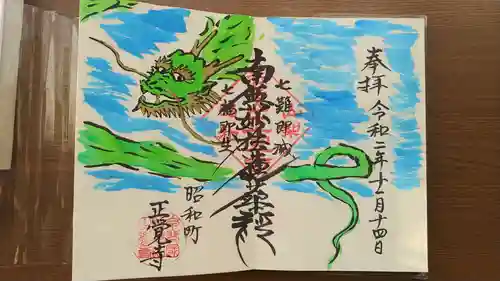 奉拝 令和二年十一月十四日
南無妙法蓮華経
七難即滅
七福即生
昭和町
正覚寺